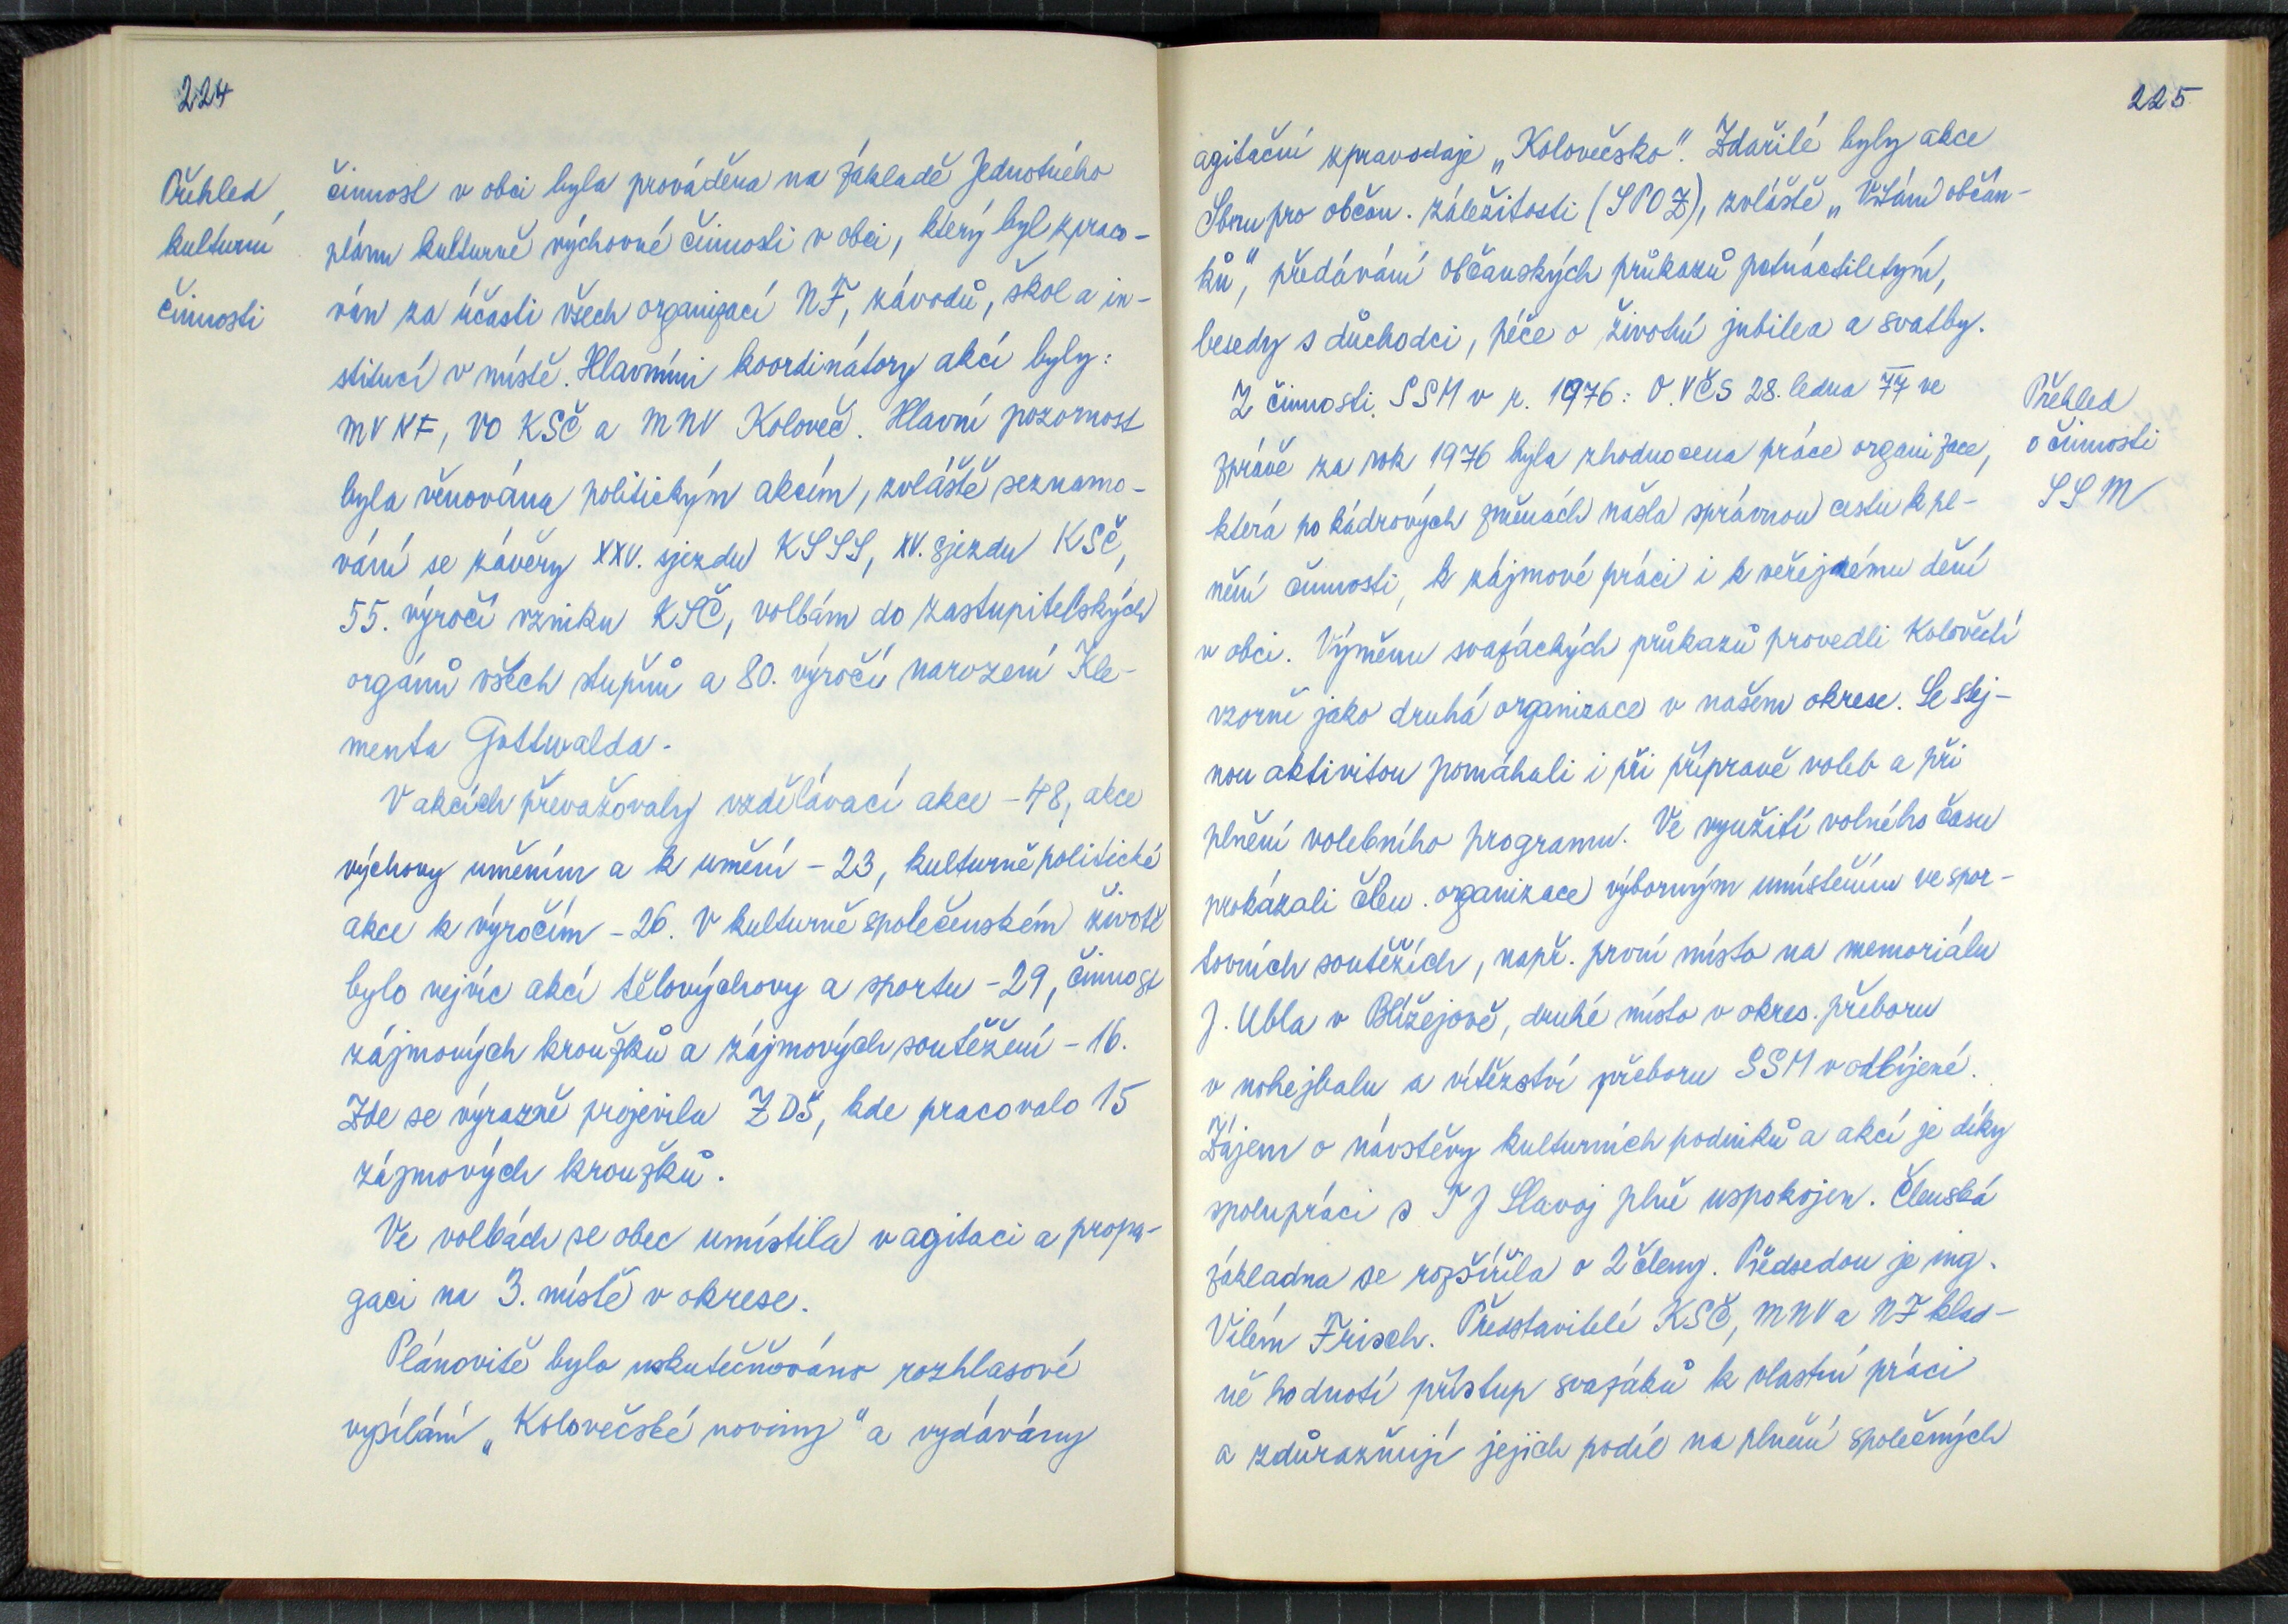 224
Přehled
kulturní
činnosti
činnost v obci byla prováděna na základě Jednotného
plánu kulturně výchovné činnosti v obci, který byl zpraco-
ván za účasti všech organizací NF, závodů, škol a in-
stitucí v místě. Hlavními koordinátory akcí byly:
MV NF, VO KSČ a MNV Koloveč. Hlavní pozornost
byla věnována politickým akcím, zvláště seznamo-
vání se závěry XXV. sjezdu KSSS, XV. sjezdu KSČ,
55. výročí vzniku KSČ, volbám do zastupitelských
orgánů všech stupňů a 80. výročí narození Kle-
menta Gottwalda.
V akcích převažovaly vzdělávací akce - 48, akce
výchovy uměním a k umění - 23, kulturně politické
akce k výročím - 26. V kulturně společenském životě
bylo nejvíc akcí tělovýchovy a sportu - 29, činnost
zájmových kroužků a zájmových soutěžení - 16.
Zde se výrazně projevila ZDŠ, kde pracovalo 15
zájmových kroužků.
Ve volbách se obec umístila v agitaci a propa-
gaci na 3. místě v okrese.
Plánovitě bylo uskutečňováno rozhlasové
vysílání „Kolovečské noviny" a vydávány
225
agitační zpravodaje „Kolovečsko". Zdařilé byly akce
Sboru pro občan. záležitosti (SPOZ), zvláště „Vítání občán-
ků", předávání občanských průkazů patnáctiletým,
besedy s důchodci, péče o životní jubilea a svatby.
Z činnosti SSM v r. 1976: O VČS 28. ledna 77 ve
zprávě za rok 1976 byla zhodnocena práce organizace,
která po kádrových změnách našla správnou cestu k pl-
nění činnosti, k zájmové práci i k veřejnému dění
v obci. Výměnu svazáckých průkazů provedli Kolovečtí
vzorně jako druhá organizace v našem okrese. Se stej-
nou aktivitou pomáhali i při přípravě voleb a při
plnění volebního programu. Ve využití volného času
prokázali člen. organizace výborným umístěním ve spor-
tovních soutěžích, např. první místo na memoriálu
J. Ubla v Blížejově, druhé místo v okres. přeboru
v nohejbalu a vítězství přeboru SSM v odbíjené.
Zájem o návštěvy kulturních podniků a akcí je díky
spolupráci s TJ Slavoj plně uspokojen. Členská
základna se rozšířila o 2 členy. Předsedou je ing.
Vilém Frisch. Představitelé KSČ, MNV a NF klad-
ně hodnotí přístup svazáků k vlastní práci
a zdůrazňují jejich podíl na plnění společných
Přehled
o činnosti
SSM